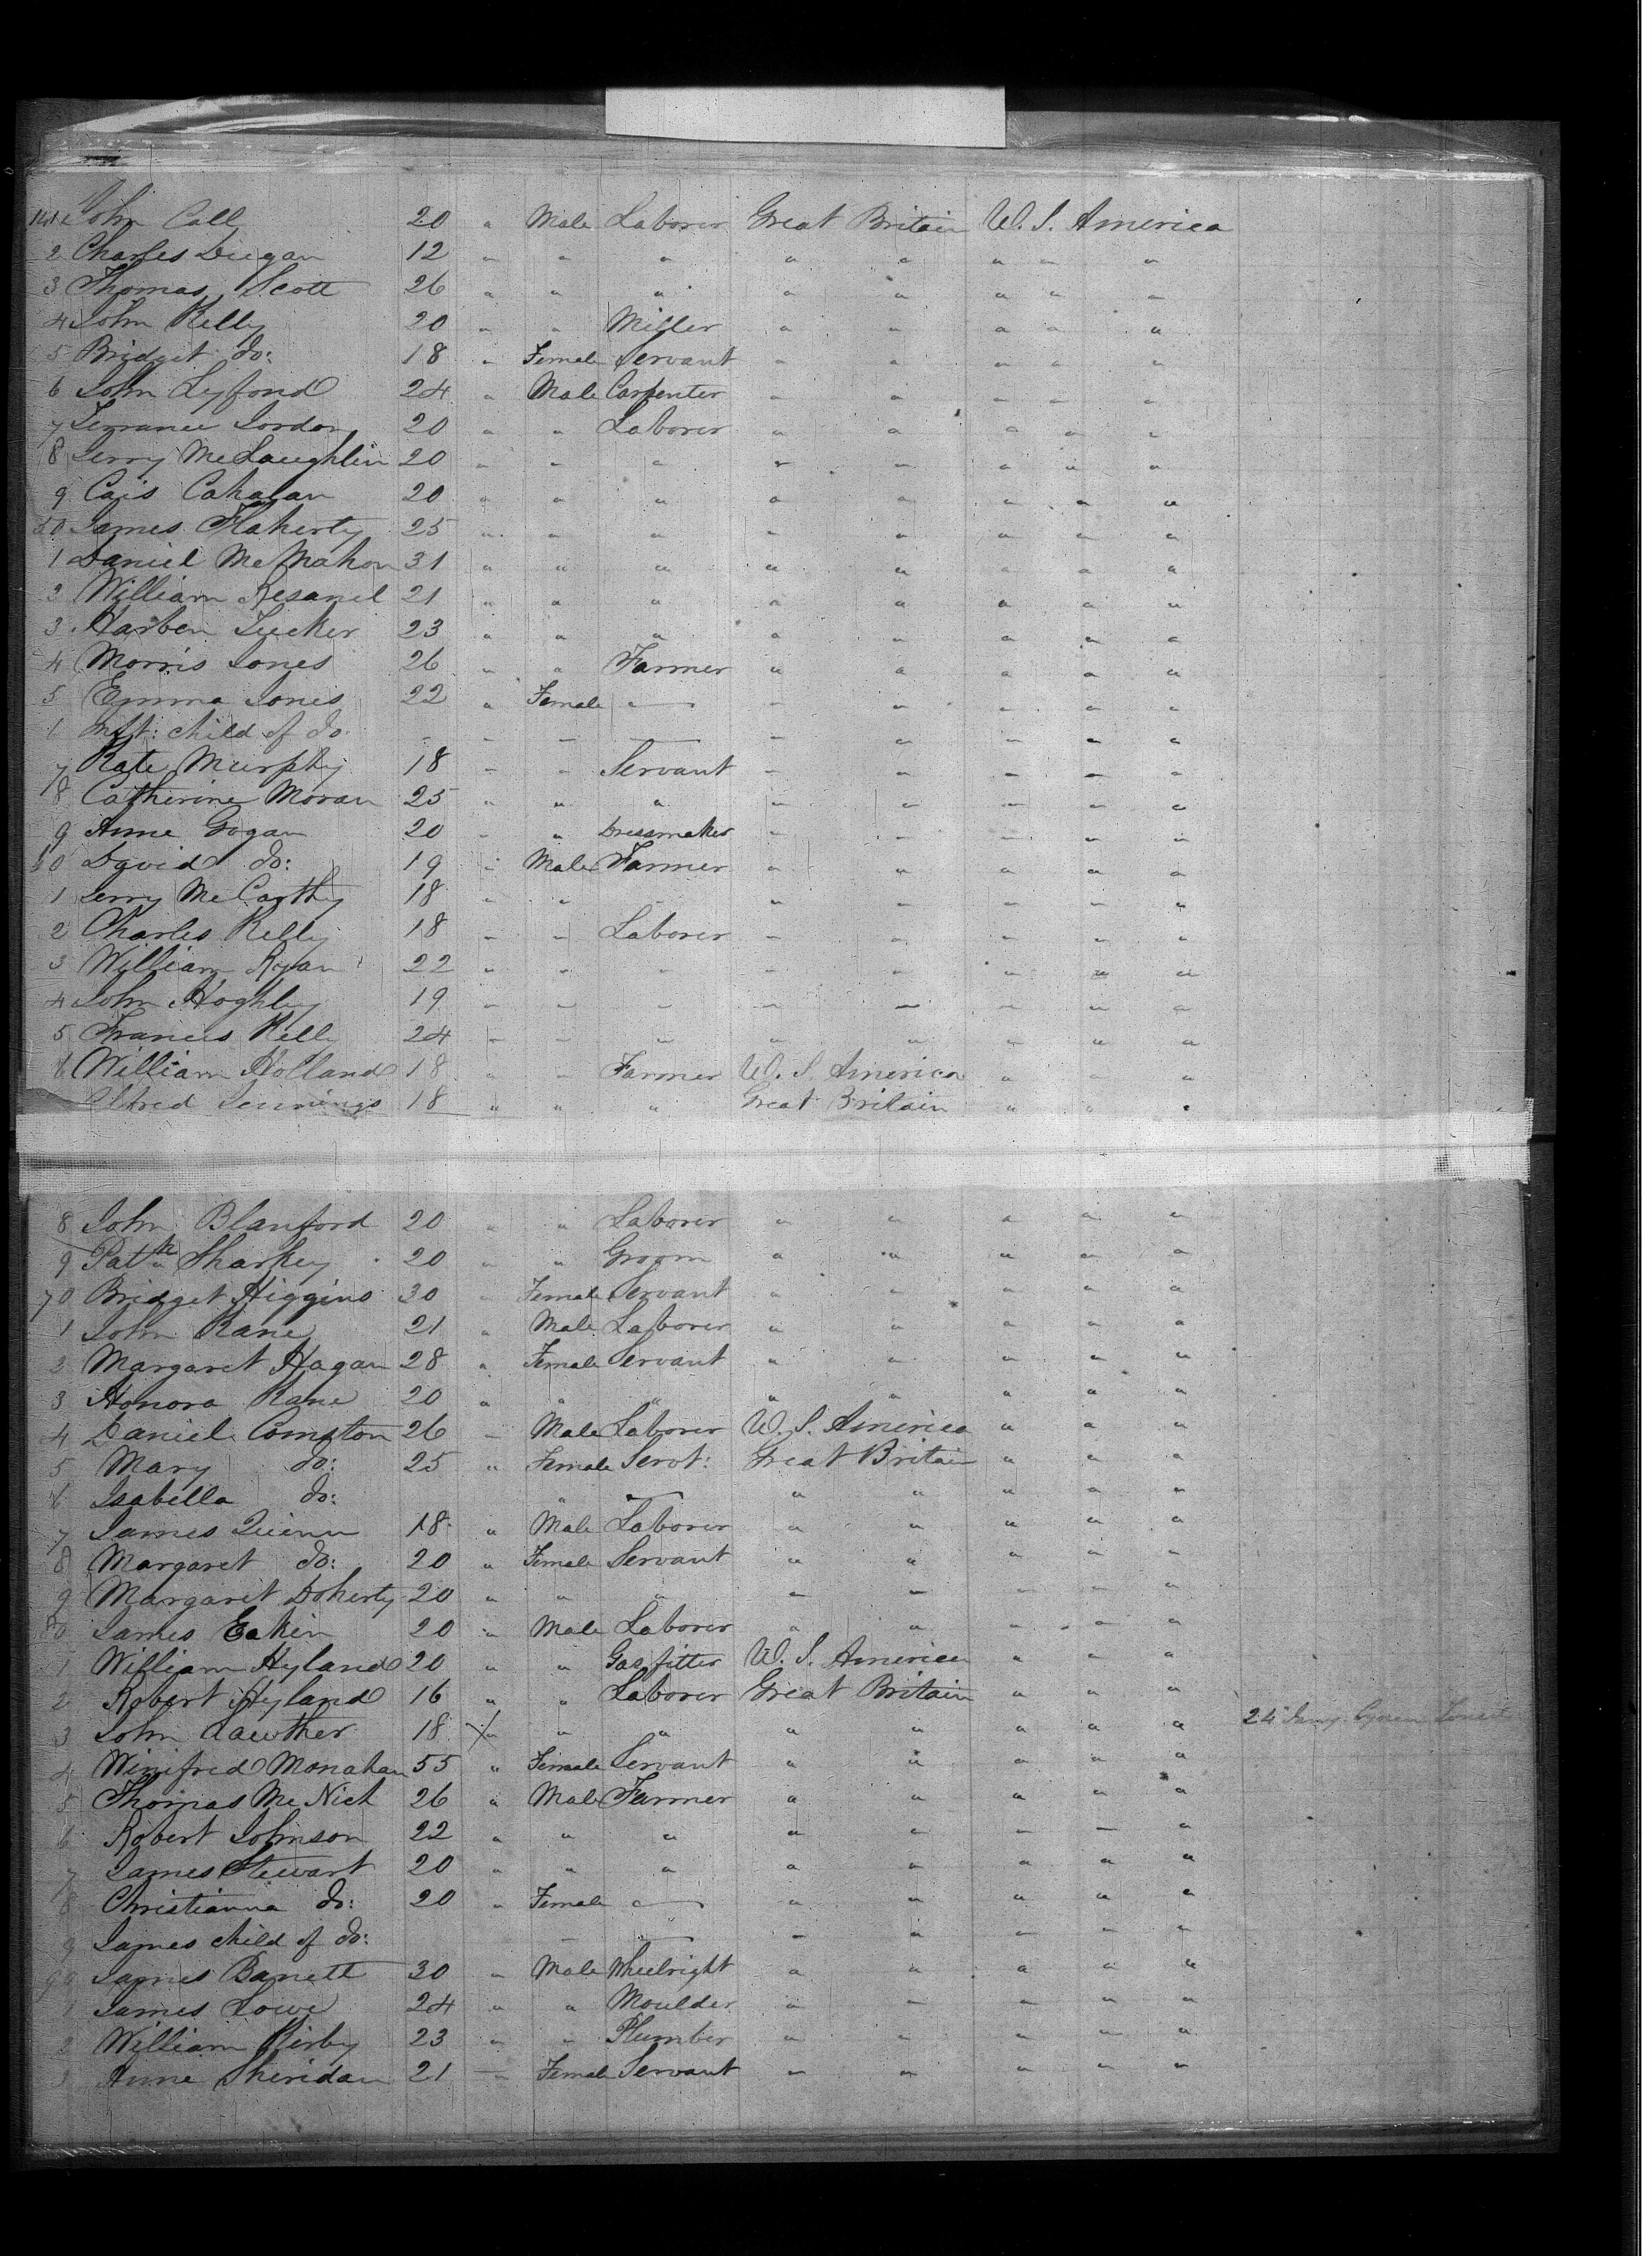 141 John Call 20 " Male Laborer Great Britain U. S. America
2 Charles Dugan 12 " " " " " " " "
3 Thomas Scott 26 " " " " " " " "
4 John Kelly 20 " " Miller " " " " "
5 Bridget do: 18 " Female Servant " " " " "
6 John Lyford 24 " Male Carpenter " " " " "
7 Terrance 20 " " Laborer " " " " "
8 Jerry McLaughlin 20 " " " " " " " "
9 Cahalan 20 " " " " " " " "
50 James Flaherty 25 " " " " " " " "
1 Daniel McMahon 31 " " " " " " " "
2 William 21 " " " " " " " "
3 Harben Tucker 23 " " " " " " " "
4 Morris Jones 26 " " Farmer " " " " "
5 Emma Jones 22 " Female " " " " " "
6 Inft: child of do - - - — " " " " "
7 Kate Murphy 18 " " Servant " " " " "
8 Catherine Moran 25 " " " " " " " "
9 Anne Gogan 20 " " Dressmaker " " " " "
60 David do: 19 " Male Farmer " " " " "
1 Jerry McCarthy 18 " " " " " " " "
2 Charles Kelly 18 " " Laborer " " " " "
3 William Ryan 22 " " " " " " " "
4 John Hoghley 19 " " " " " " " "
5 Francis Kelly 24 " " " " " " " "
6 William Holland 18 " " Farmer U. S. America " " "
Alfred Jennings 18 " " " Great Britain " " "
8 John Blanford 20 " " Laborer " " " " "
9 Patk Sharkey 20 " " Groom " " " " "
70 Bridget Higgins 30 " Female Servant " " " " "
1 John Kane 21 " Male Laborer " " " " "
2 Margaret Hagan 28 " Female Servant " " " " "
3 Honora Kane 20 " " " " " " " "
4 Daniel Compton 26 " Male Laborer U. S. America " " "
5 Mary do: 25 " Female Servt: Great Britain " " "
6 Isabella do: " — " " " " "
7 James Quinn 18 " Male Laborer " " " " "
8 Margaret do: 20 " Female Servant " " " " "
9 Margaret Doherty 20 " " " " " " " "
80 James Eakin 20 " Male Laborer " " " " "
1 William Hyland 20 " " Gas fitter U. S. America " " "
2 Robert Hyland 16 " " Laborer Great Britain " " "
3 John Lawther 18 X " " " " " " " " 24
4 Winifred Monahan 55 " Female Servant " " " " "
5 Thomas McNich 26 " Male Farmer " " " " "
6 Robert Johnson 22 " " " " " " " "
7 James Stewart 20 " " " " " " " "
8 Christianna do: 20 " Female " " " " " "
9 James child of do: — — " " " " "
90 James Banett 30 " Male Wheelright " " " " "
1 James Lowe 24 " " Moulder " " " " "
2 William Kirby 23 " " Plumber " " " " "
3 Anne Sheridan 21 " Female Servant " " " " "